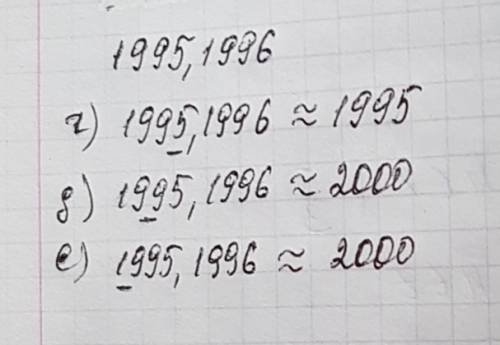 1995,1996
г) 1995,1996 ≈ 1995
д) 1995,1996 ≈ 2000
е) 1995,1996 ≈ 2000